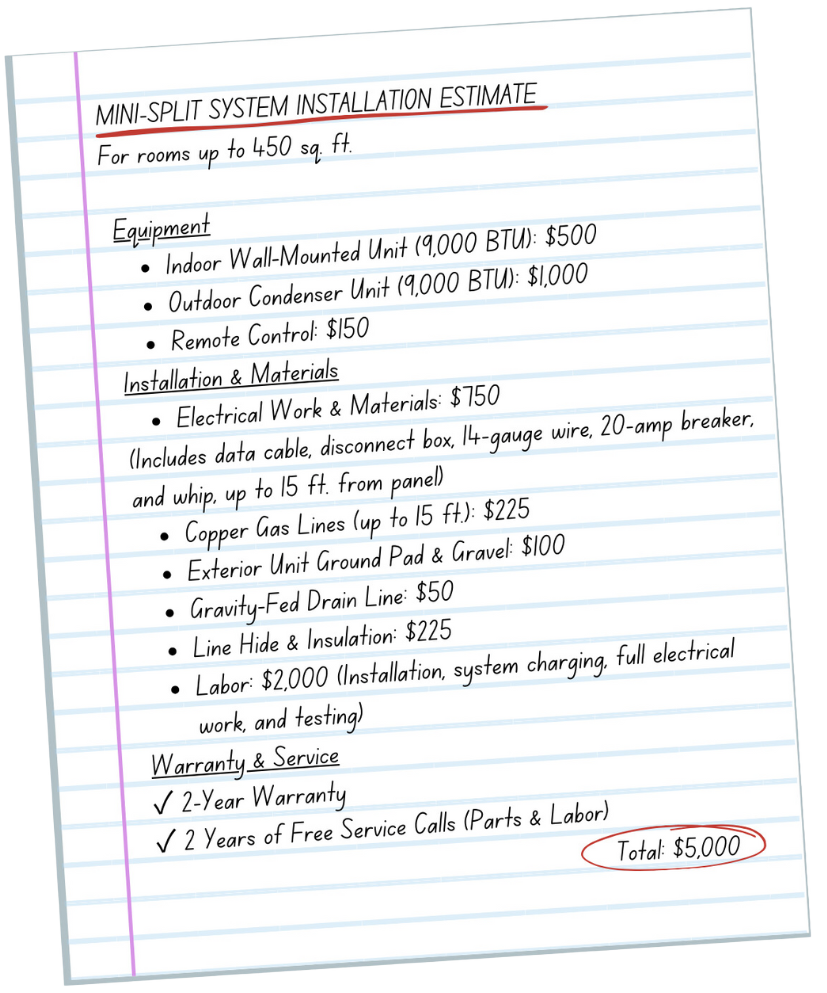 MINI-SPLIT SYSTEM INSTALLATION ESTIMATE
For rooms up to 450 sq. ft.
Equipment
• Indoor Wall-Mounted Unit (9,000 BTU): $500
• Outdoor Condenser Unit (9,000 BTU): $1,000
• Remote Control: $150
Installation & Materials
• Electrical Work & Materials: $750
(Includes data cable, disconnect box, 14-gauge wire, 20-amp breaker,
and whip, up to 15 ft. from panel)
• Copper Gas Lines (up to 15 ft.): $225
• Exterior Unit Ground Pad & Gravel: $100
• Gravity-Fed Drain Line: $50
• Line Hide & Insulation: $225
• Labor: $2,000 (Installation, system charging, full electrical
work, and testing)
Warranty & Service
✓ 2-Year Warranty
✓ 2 Years of Free Service Calls (Parts & Labor)
Total: $5,000